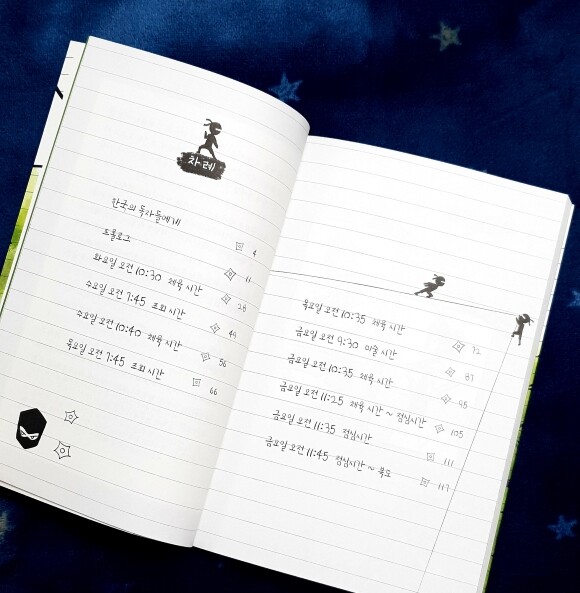 차례
한국의 독자들에게 4
프롤로그 11
화요일 오전 10:30 체육 시간 28
수요일 오전 7:45 조회 시간 49
수요일 오전 10:40 체육 시간 56
목요일 오전 7:45 조회 시간 66
목요일 오전 10:35 체육 시간 72
금요일 오전 9:30 미술 시간 83
금요일 오전 10:35 체육 시간 95
금요일 오전 11:25 체육 시간 ~ 점심시간 105
금요일 오전 11:35 점심시간 111
금요일 오전 11:45 점심시간 ~ 복도 117